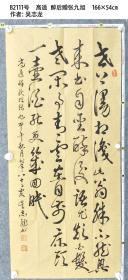 B2111号 高适 醉后赠张九旭 166×54cm
作者: 吴志龙
世上漫相识此翁殊不然兴
来书自圣醉后语尤颠白
发老闲事青云在目前床头
一壶酒能更几回眠